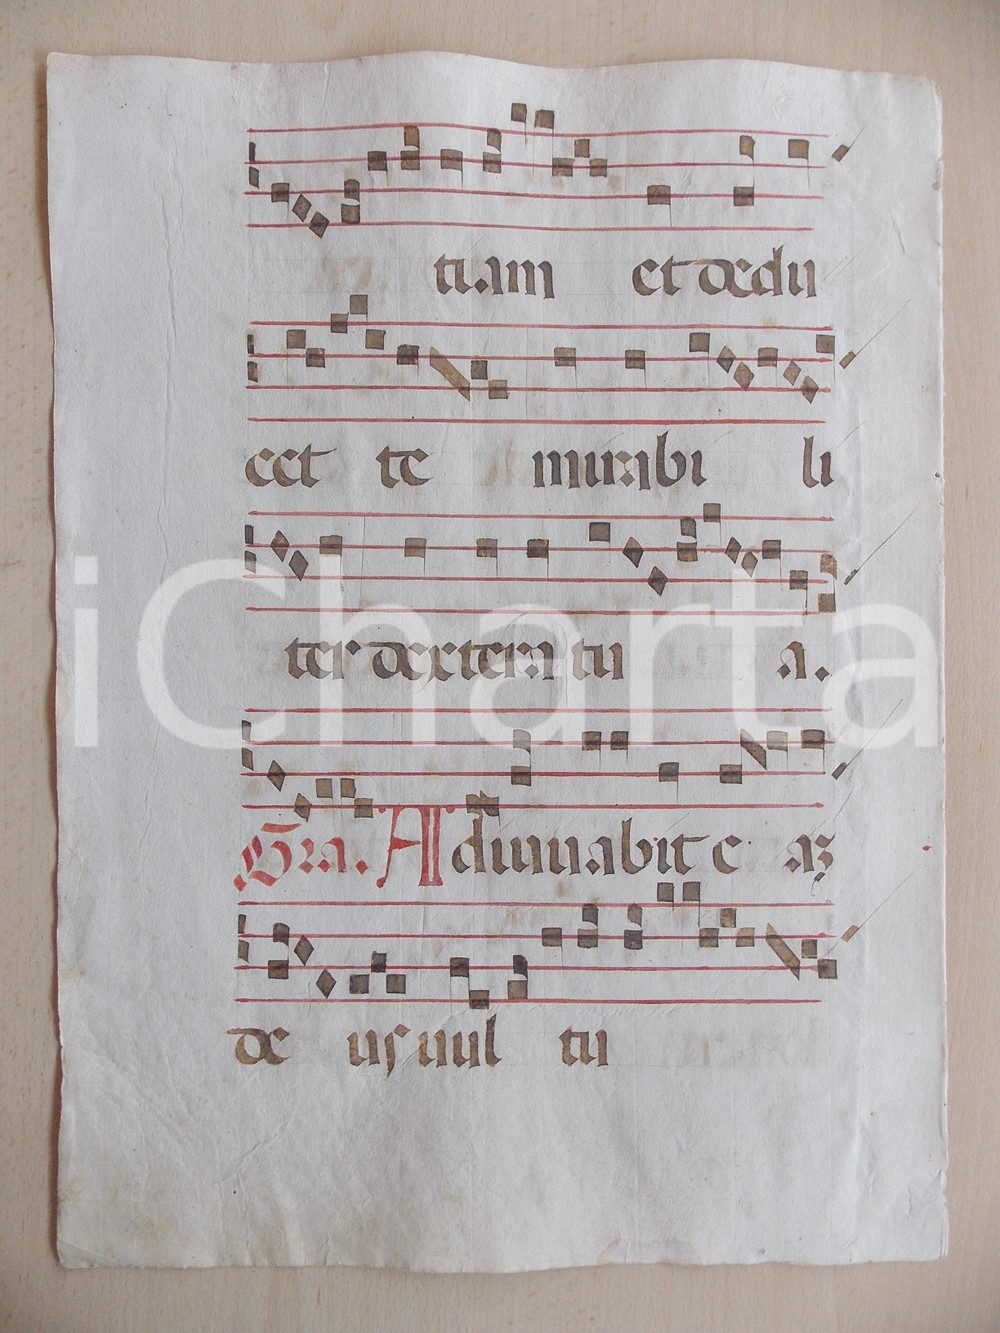 tuam et dedu
cet te mirabi li
ter dextera tu a.
Gra. Adiuuabit e aʒ
de us uul tu
iCharta